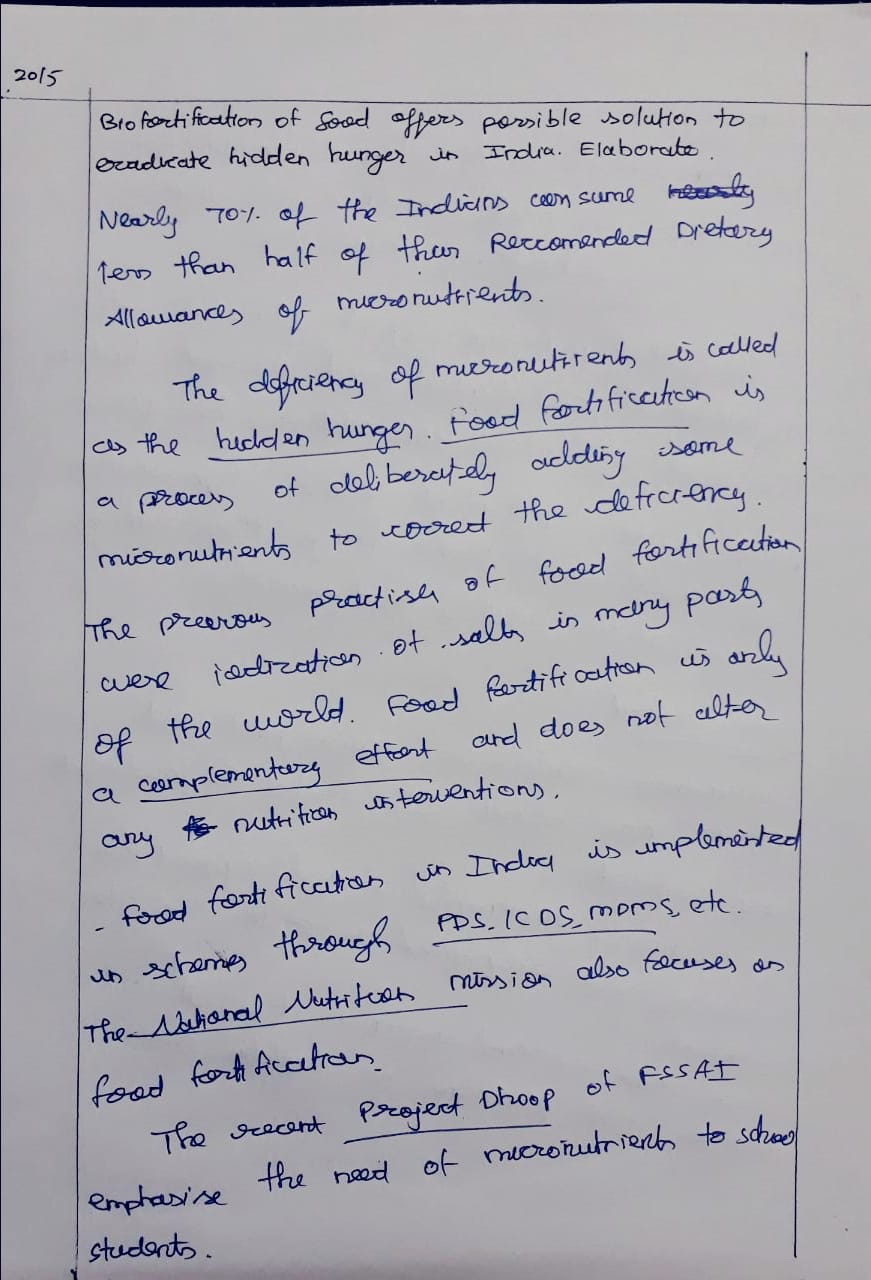 2015
Biofortification of food offers possible solution to
eradicate hidden hunger in India. Elaborate.
Nearly 70% of the Indians consume nearly
less than half of their Reccomended Dietary
Allowances of micronutrients.
The deficiency of micronutrients is called
as the hidden hunger. Food fortification is
a process of deliberately adding some
micronutrients to correct the deficiency.
The previous practises of food fortification
were iodization of salts in many parts
of the world. Food fortification is only
a complementary effort and does not alter
any nutrition interventions.
- food fortification in India is implemented
in schemes through PDS, ICDS, MDMS, etc.
The National Nutrition mission also focuses on
food fortification.
The recent Project Dhoop of FSSAI
emphasise the need of micronutrients to school
students.